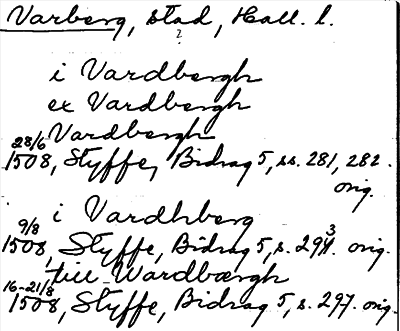 Varberg, stad, Hall. l.
?
i Vardbergh
ex Vardbergh
Vardbergh
28/6 1508, Styffe, Bidrag 5, ss. 281, 282.
orig.
i Vardhberg
9/8 1508, Styffe, Bidrag 5, s. 293. orig.
till Wardbærgh
16-21/8 1508, Styffe, Bidrag 5, s. 297. orig.